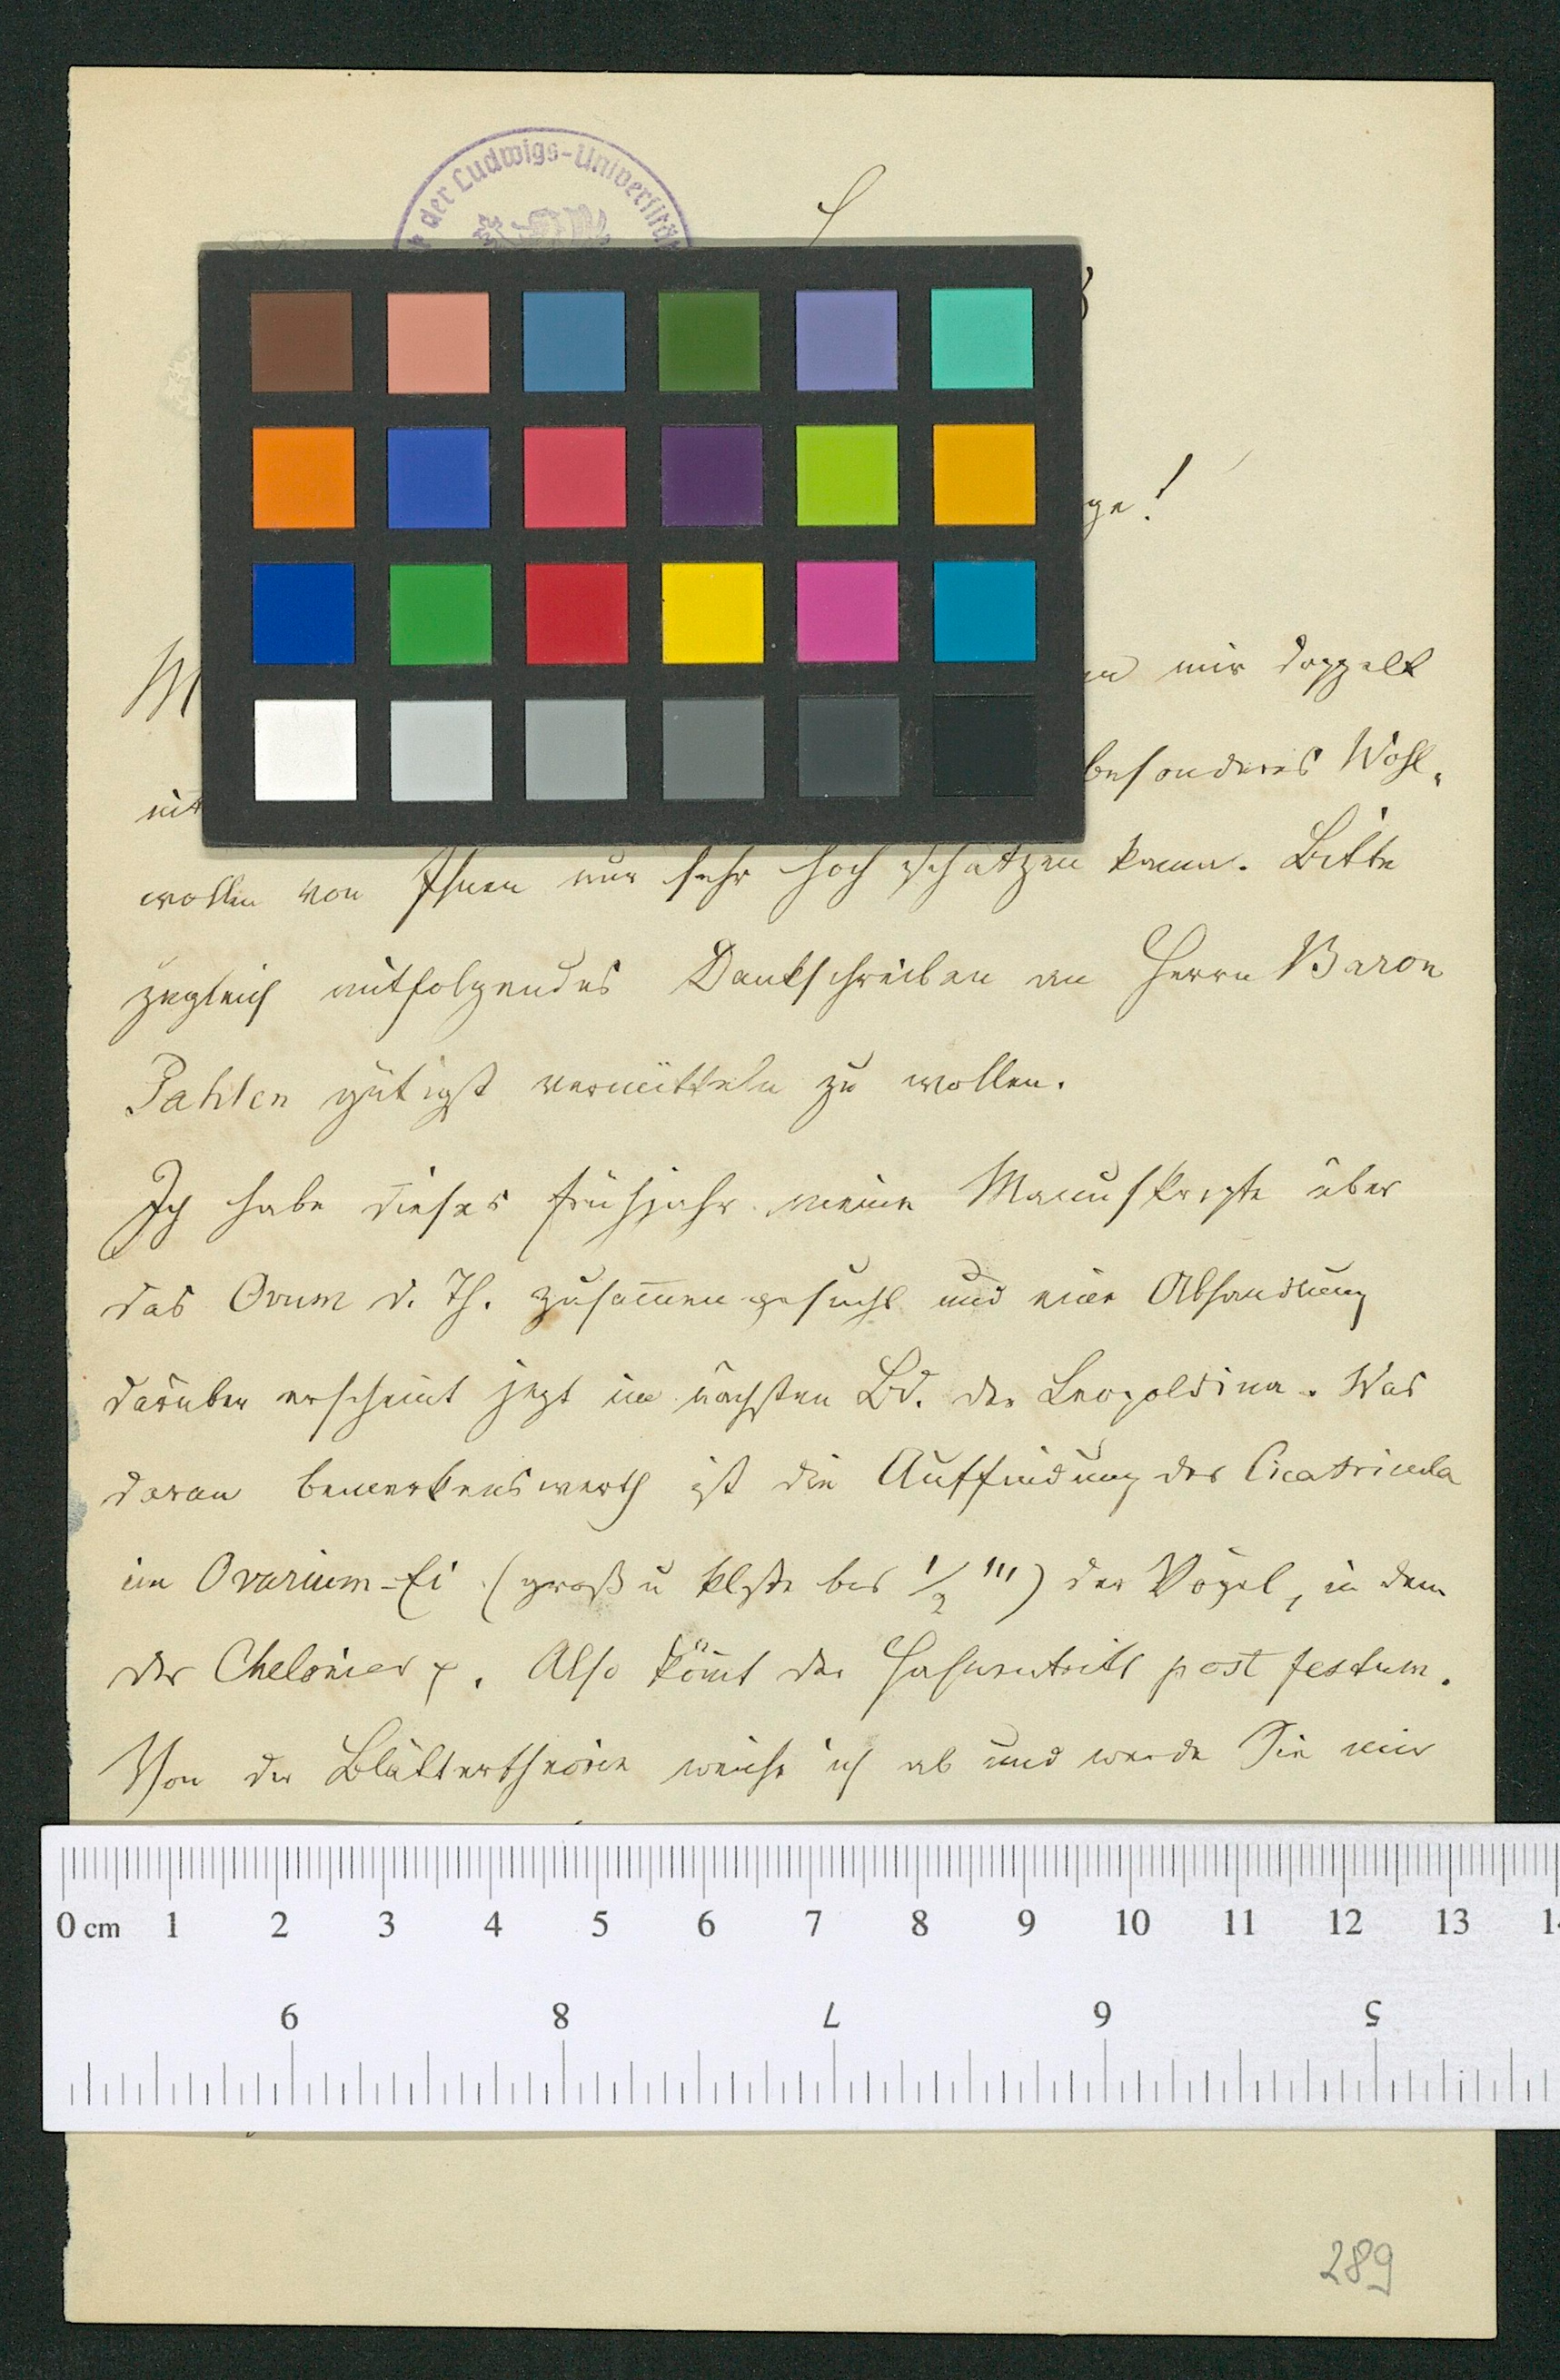 der Ludwigs-Universität
ge!
M
mir doppelt
besonderes Wohl-
wollen von Ihnen nur sehr hoch schätzen kann. Bitte
zugleich mitfolgendes Dankschreiben an Herrn Baron
Pahlen gütigst vermitteln zu wollen.
Ich habe dieses Frühjahr meine Manuskripte über
das Ovum d. Th. zusam̅en gesucht und eine Abhandlung
darüber erscheint jezt im nächsten Bd. der Leopoldina. Was
daran bemerkenswerth ist die Auffindung der Cicatricula
im Ovarium-Ei (groß u klste bis 1/2 ''') der Vögel, in dem
der Chelonier p. Also köm̅t der Hahnentritt post festum.
Von der Blättertheorie weiche ich ab und werde Sie mir
0 cm 1 2 3 4 5 6 7 8 9 10 11 12 13
9 8 7 6 5
289